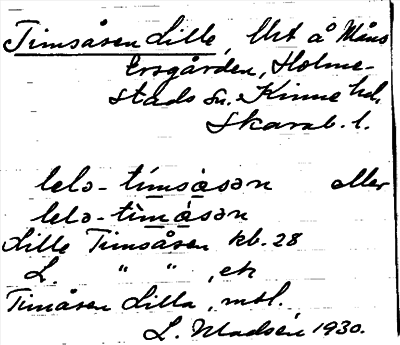 Timsåsen Lille, Urt å Måns
Ersgården, Holme-
stads sn. Kinne hd.
Skarab. l.
lelə-tímsåsən eller
lelə-tìmåsən
Lille Timsåsen kb. 28
L. " " , ek
Timåsen Lilla, mtl.
L. Madsén, 1930.